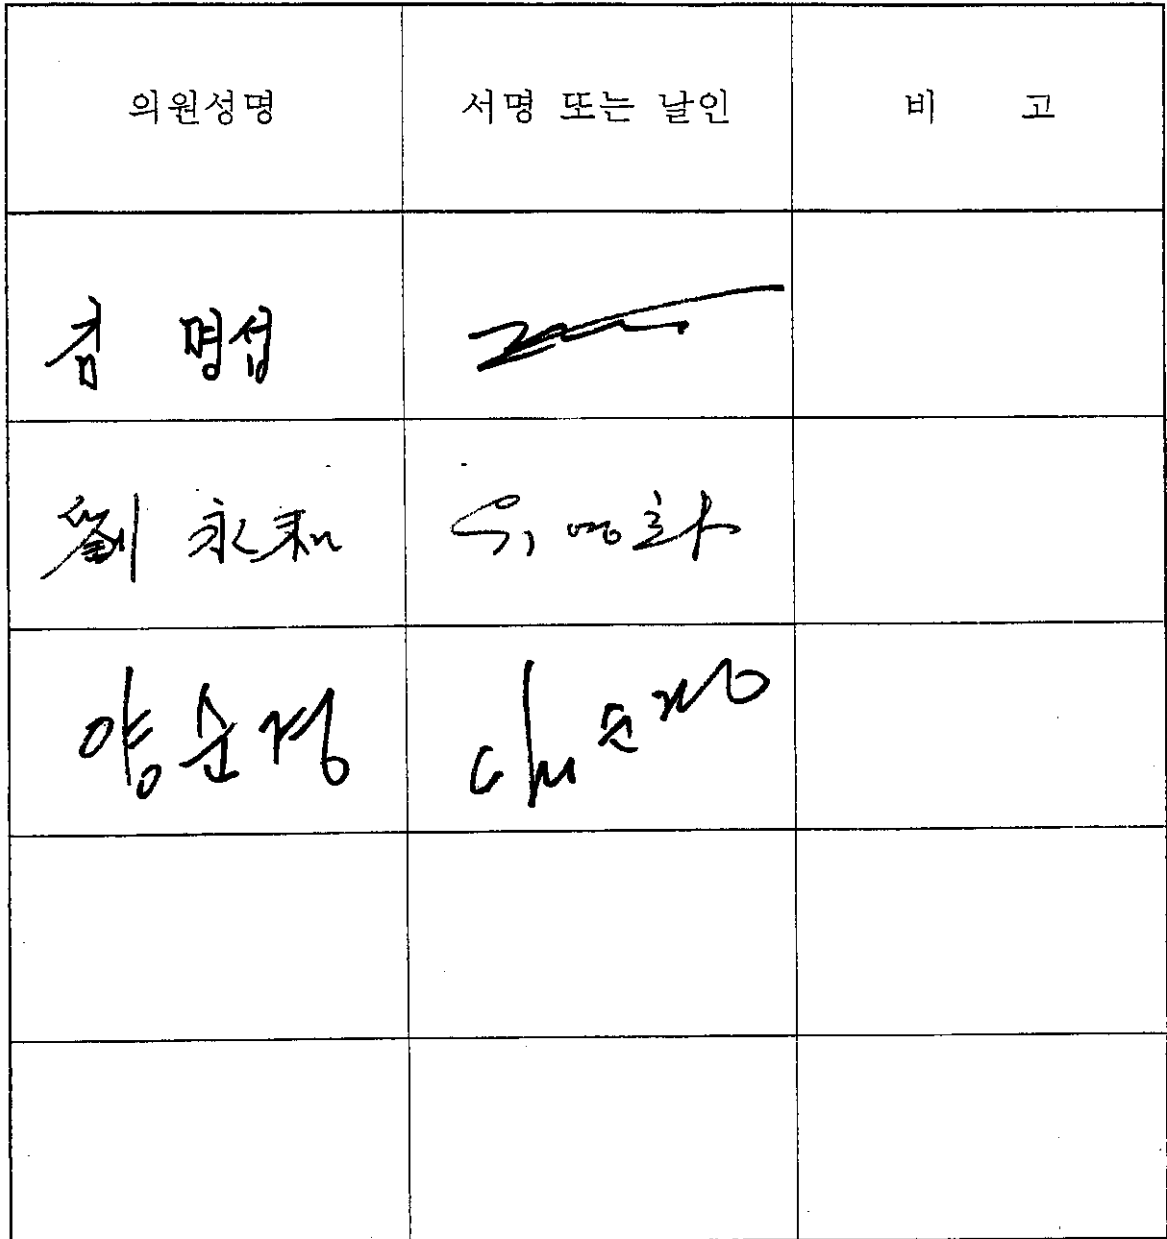 의원성명 서명 또는 날인 비 고
김 명섭
劉 永和 유영화
양순정